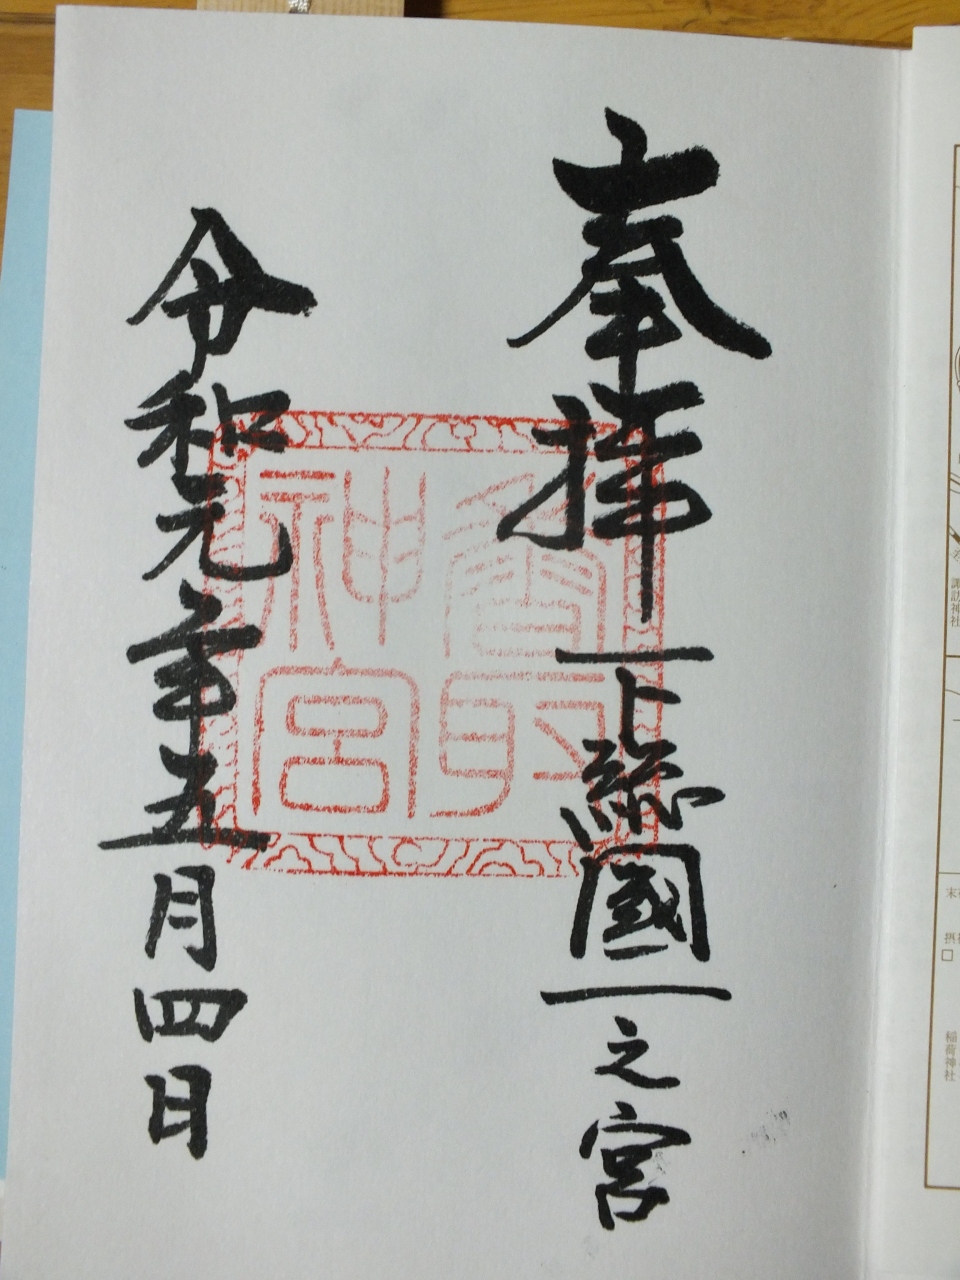 奉拝
下総國一之宮
香取
神宮
令和元年五月四日
諏訪神社
末
摂
稲荷神社